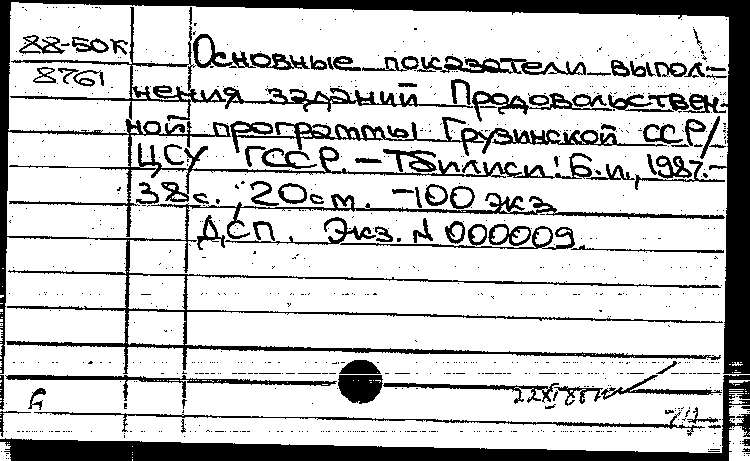 88-50К
8761
Основные показатели выпол-
нения заданий Продовольствен-
ной программы Грузинской ССР/
ЦСУ ГССР. — Тбилиси: Б.и., 1987. —
38 с.; 20 см. — 100 экз.
ДСП. Экз. N 000009.